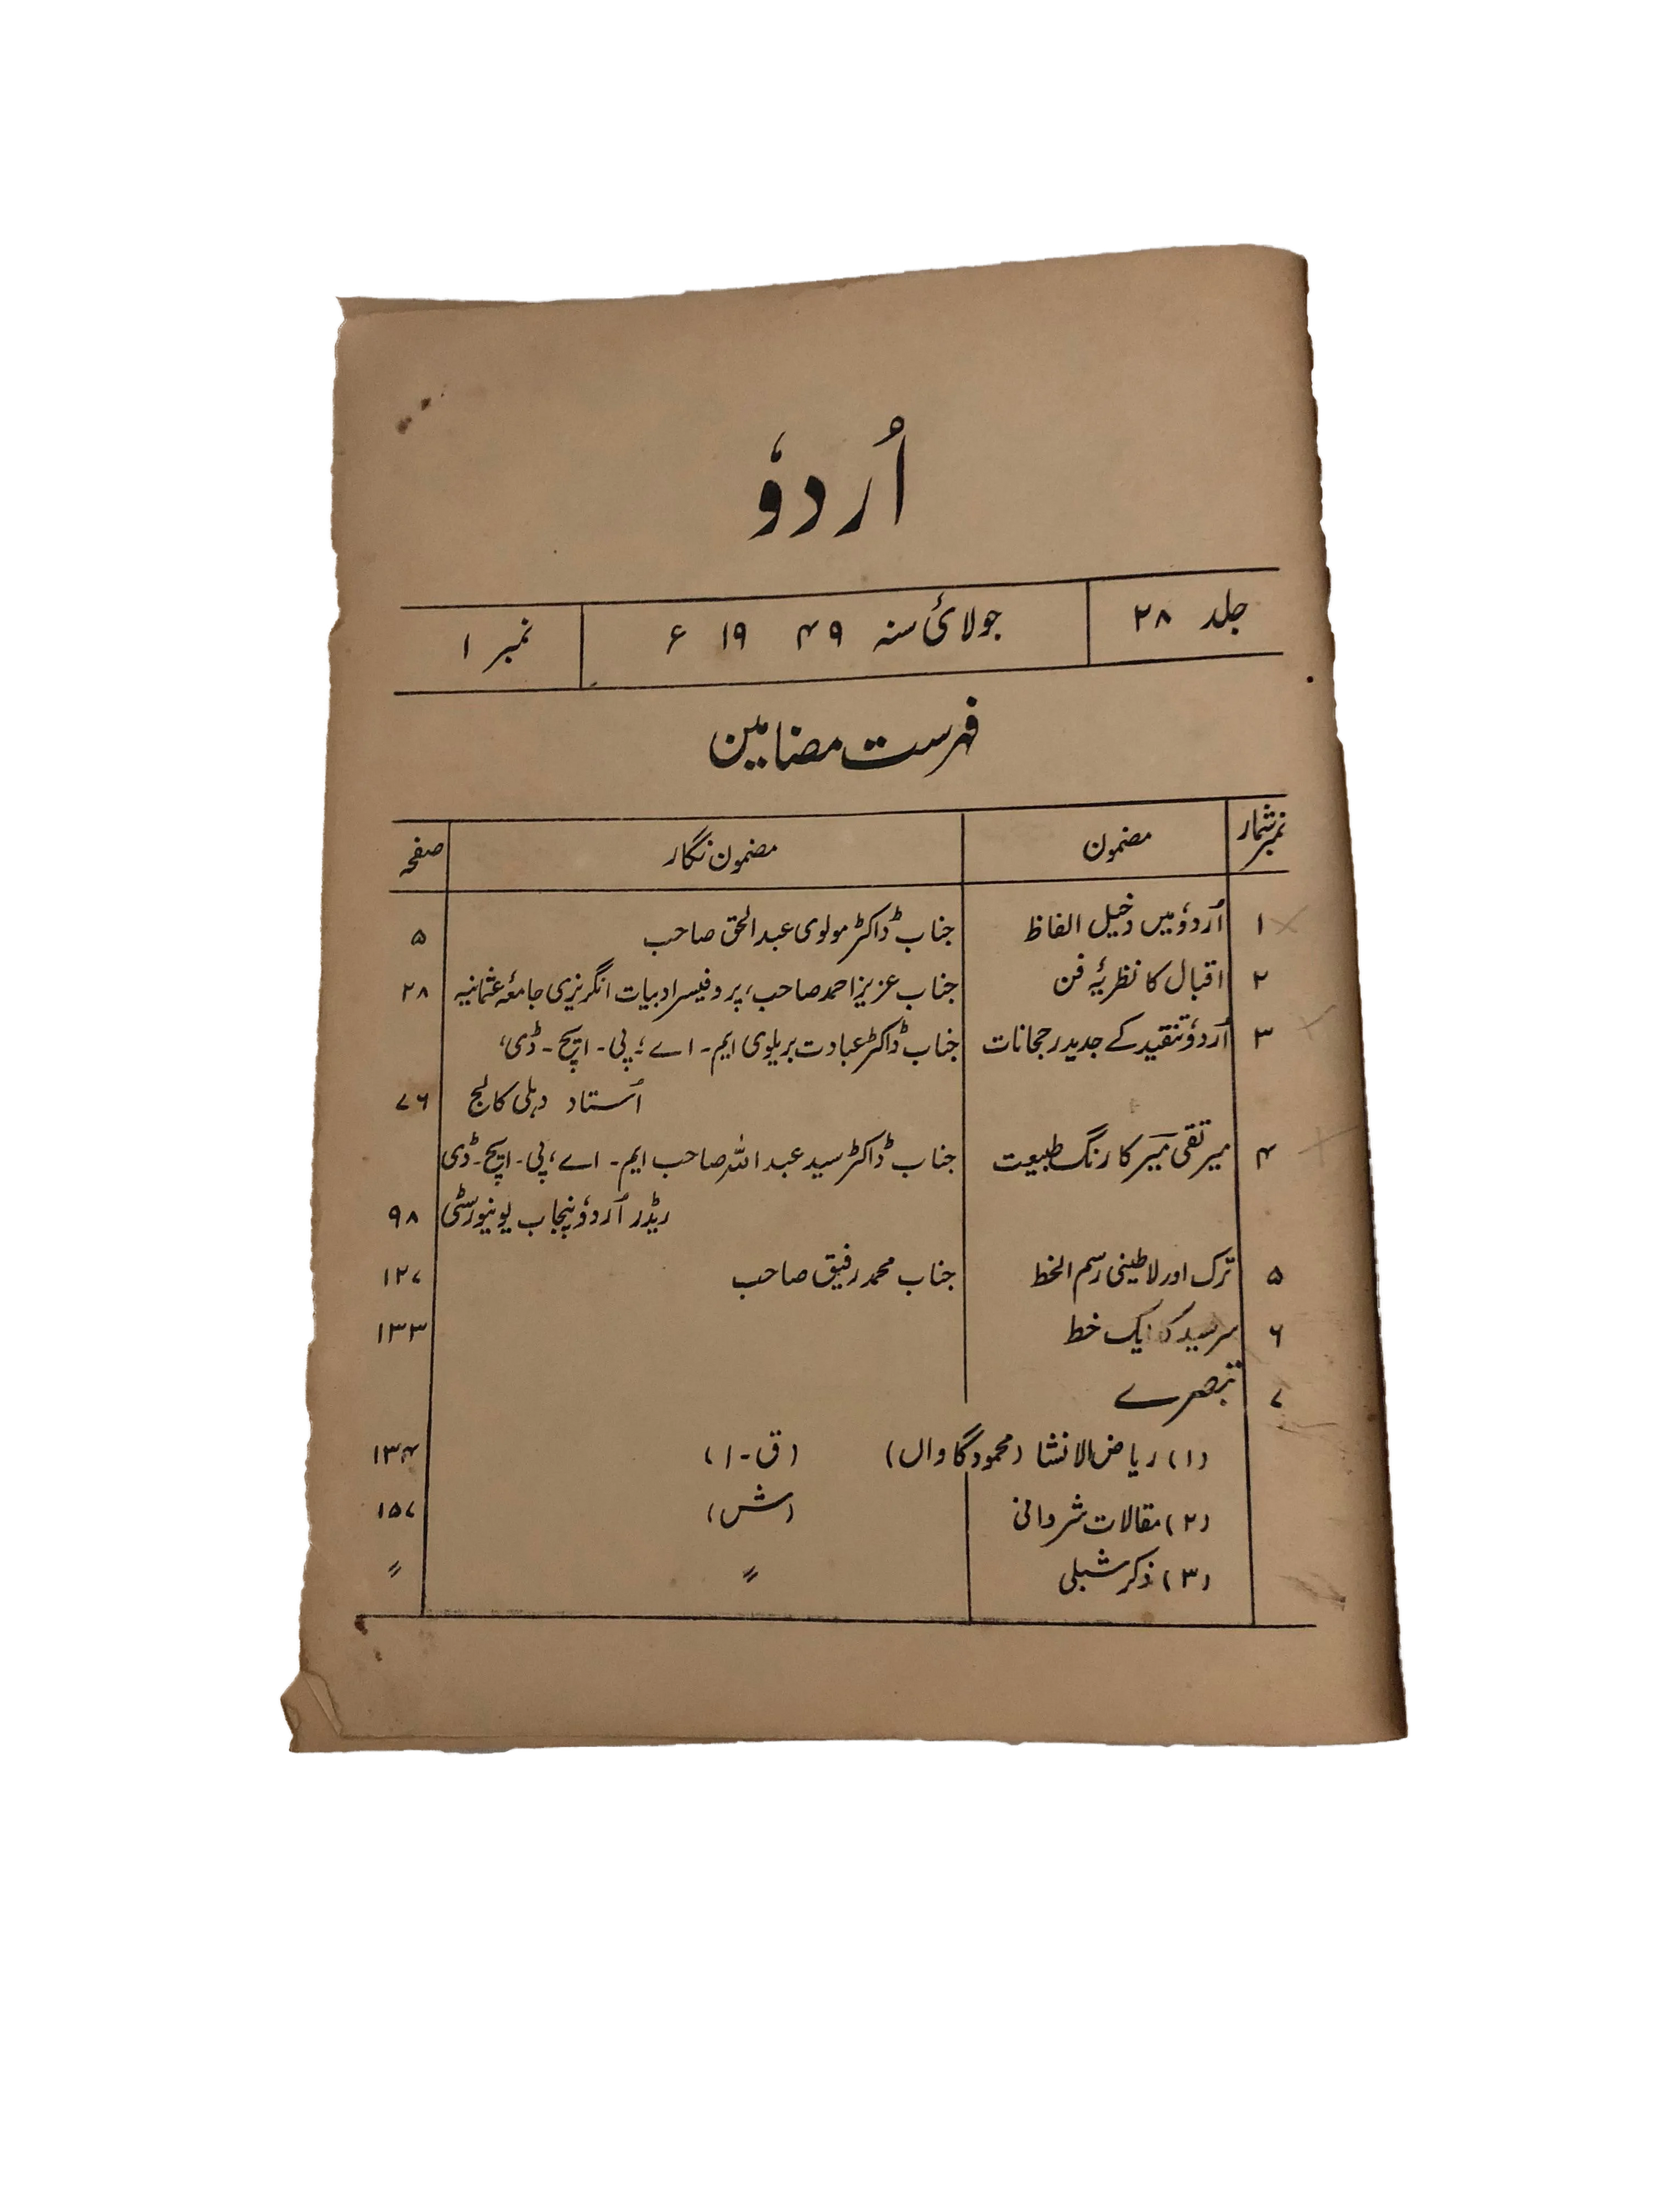 اُردوٗ
جلد ۲۸ جولائی سنہ ۴۹ ۱۹ ء نمبر ۱
فہرست مضامین
نمبر شمار مضمون مضمون نگار صفحہ
۱ اُردوٗ میں دخیل الفاظ جناب ڈاکٹر مولوی عبدالحق صاحب ۵
۲ اقبال کا نظریۂ فن جناب عزیز احمد صاحب، پروفیسر ادبیات انگریزی جامعۂ عثمانیہ ۲۸
۳ اُردوٗ تنقید کے جدید رجحانات جناب ڈاکٹر عبادت بریلوی ایم۔ اے، پی۔ ایچ۔ ڈی،
اُستاد دہلی کالج ۷۶
۴ میر تقی میر کا رنگ طبیعت جناب ڈاکٹر سید عبداللہ صاحب ایم۔ اے، پی۔ ایچ۔ ڈی
ریڈر اُردوٗ پنجاب یونیورسٹی ۹۸
۵ ترک اور لاطینی رسم الخط جناب محمد رفیق صاحب ۱۲۷
۶ سرسید کا ایک خط ۱۳۳
۷ تبصرے
(۱) ریاض الانشا (محمود گاواں) (ق۔ا) ۱۳۴
(۲) مقالات شروانی (ش) ۱۵۷
(۳) ذکر شبلی 〃 〃